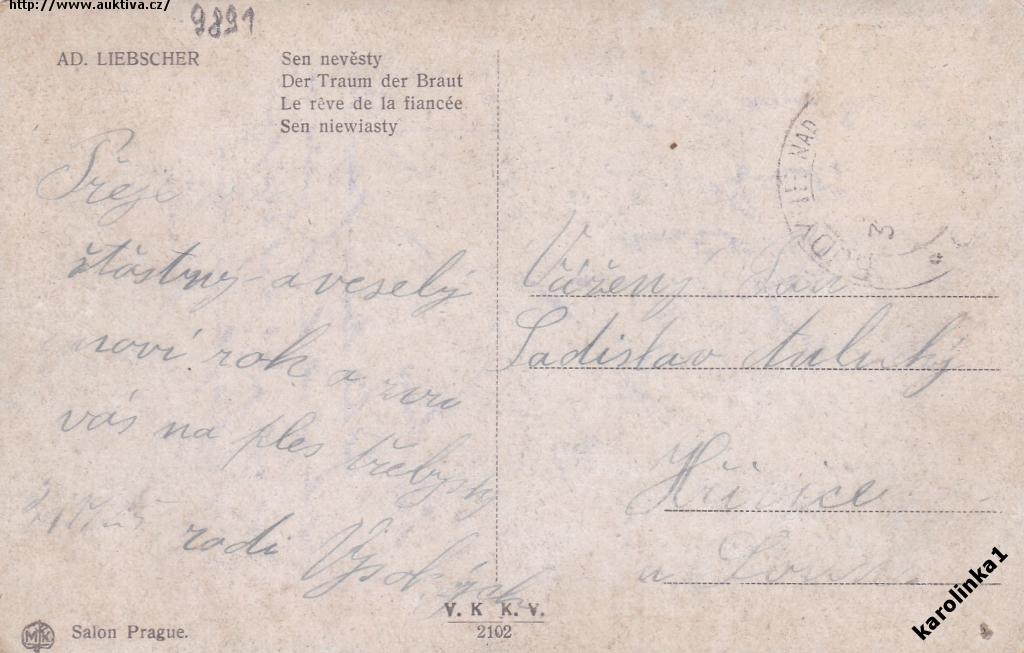 http://www.auktiva.cz/
9891
AD. LIEBSCHER
Sen nevěsty
Der Traum der Braut
Le rêve de la fiancée
Sen niewiasty
Přeji
štastny a veselý
noví rok a zvu
vás na ples
radi
Vážený Pan
Ladislav
Hřivice
u
NAD
3
V. K K. V.
2102
MK
Salon Prague.
karolinka1